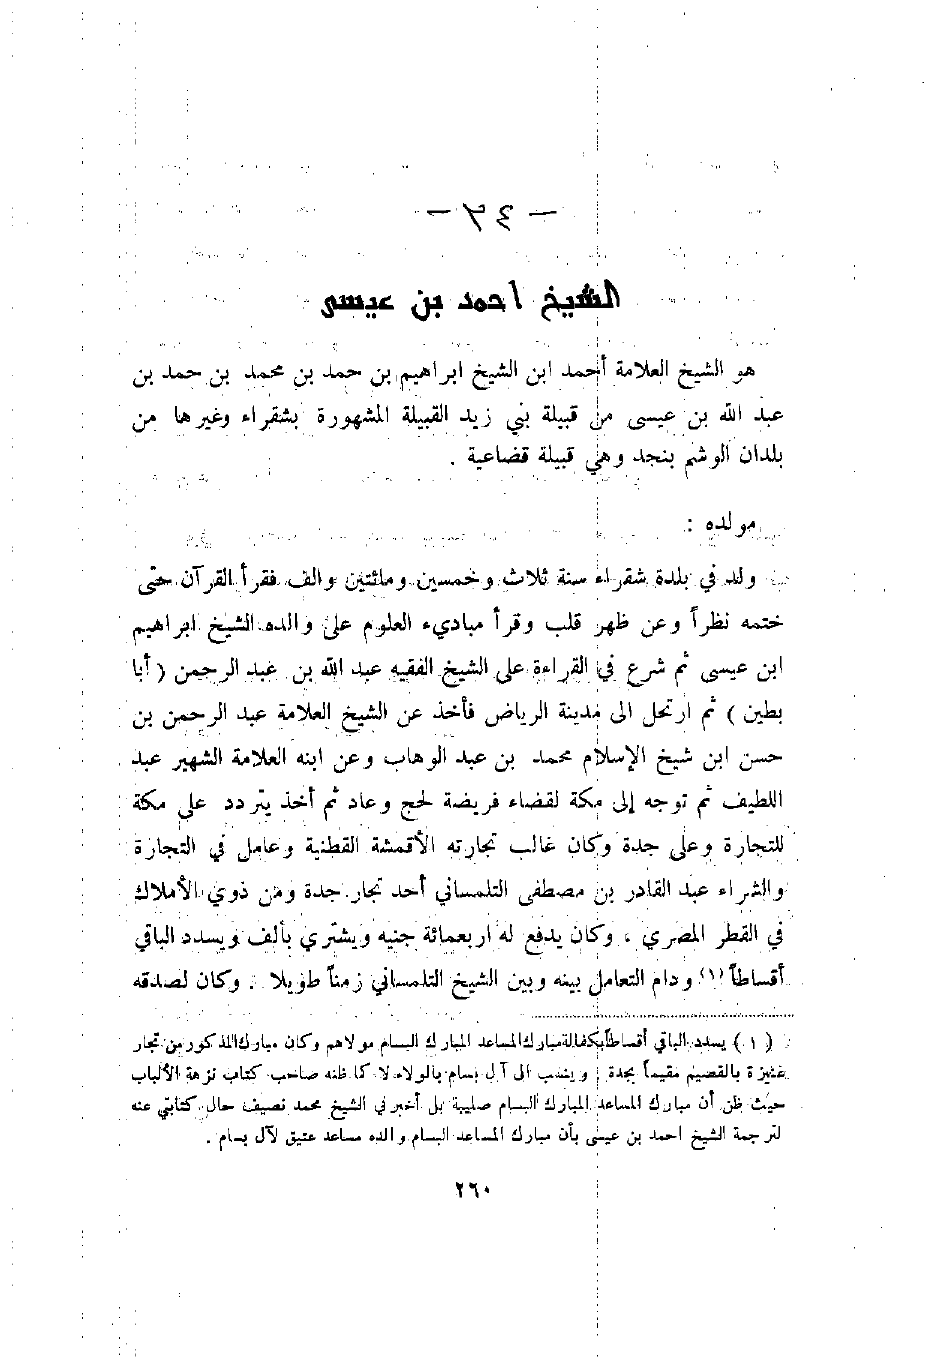 - ٣٤ -
الشيخ احمد بن عيسى
هو الشيخ العلامة أحمد ابن الشيخ ابراهيم بن حمد بن محمد بن حمد بن
عبد الله بن عيسى من قبيلة بني زيد القبيلة المشهورة بشقراء وغيرها من
بلدان الوشم بنجد وهي قبيلة قضاعية .
مولده :
ولد في بلدة شقراء سنة ثلاث وخمسين ومائتين والف فقرأ القرآن حتى
ختمه نظراً وعن ظهر قلب وقرأ مباديء العلوم على والده الشيخ ابراهيم
ابن عيسى ثم شرع في القراءة على الشيخ الفقيه عبد الله بن عبد الرحمن ( أبا
بطين ) ثم ارتحل الى مدينة الرياض فأخذ عن الشيخ العلامة عبد الرحمن بن
حسن ابن شيخ الإسلام محمد بن عبد الوهاب وعن ابنه العلامة الشهير عبد
اللطيف ثم توجه إلى مكة لقضاء فريضة لحج وعاد ثم أخذ يتردد على مكة
للتجارة وعلى جدة وكان غالب تجارته الأقمشة القطنية وعامل في التجارة
والشراء عبد القادر بن مصطفى التلمساني أحد تجار جدة ومن ذوي الأملاك
في القطر المصري ، وكان يدفع له اربعمائة جنيه ويشتري بألف ويسدد الباقي
أقساطاً (١) ودام التعامل بينه وبين الشيخ التلمساني زمناً طويلا . وكان لصدقه
( ١ ) يسدد الباقي أقساطاً بكفالة مبارك المساعد المبارك البسام مولاهم وكان مبارك المذكور من تجار
عنيزة بالقصيم مقيماً بجدة وينتسب الى آل بسام بالولاء لا كما ظنه صاحب كتاب نزهة الألباب
حيث ظن أن مبارك المساعد المبارك البسام صليبة بل أخبرني الشيخ محمد نصيف حال كتابتي عنه
لترجمة الشيخ احمد بن عيسى بأن مبارك المساعد البسام والده مساعد عتيق لآل بسام .
٢٦٠